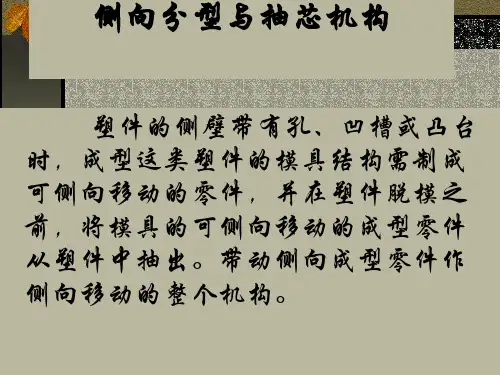 侧向分型与抽芯机构
塑件的侧壁带有孔、凹槽或凸台
时，成型这类塑件的模具结构需制成
可侧向移动的零件，并在塑件脱模之
前，将模具的可侧向移动的成型零件
从塑件中抽出。带动侧向成型零件作
侧向移动的整个机构。